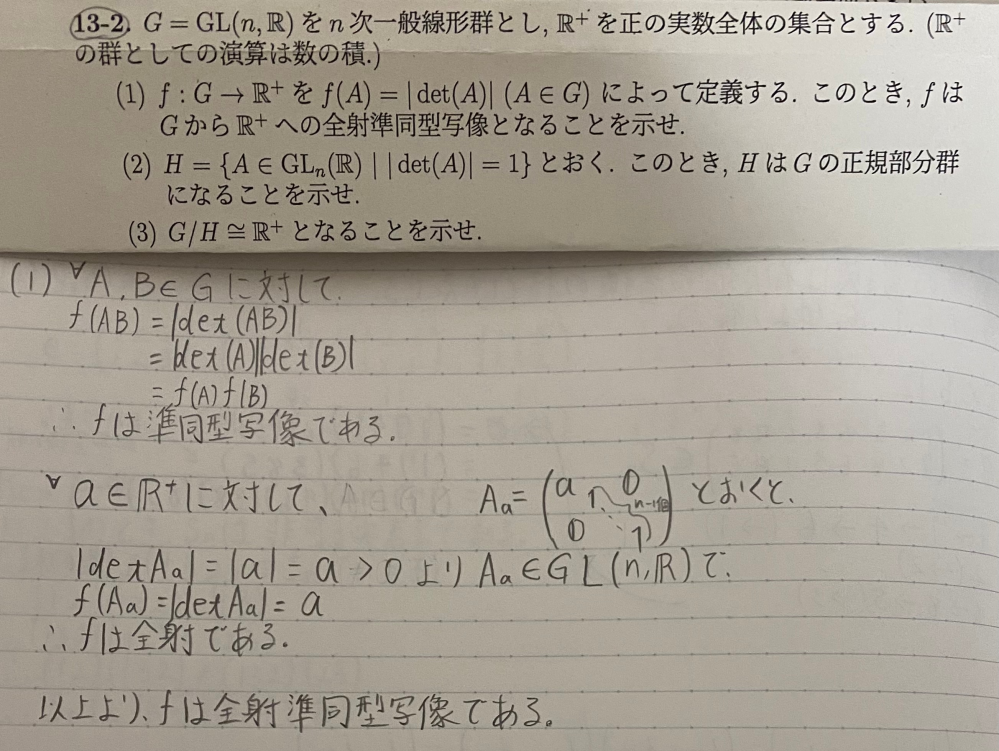 13-2. G = GL(n, ℝ) を n 次一般線形群とし, ℝ⁺ を正の実数全体の集合とする. (ℝ⁺
の群としての演算は数の積.)
(1) f : G → ℝ⁺ を f(A) = | det(A)| (A ∈ G) によって定義する. このとき, f は
G から ℝ⁺ への全射準同型写像となることを示せ.
(2) H = {A ∈ GLₙ(ℝ) | | det(A)| = 1} とおく. このとき, H は G の正規部分群
になることを示せ.
(3) G/H ≅ ℝ⁺ となることを示せ.
(1) ∀A, B ∈ G に対して,
f(AB) = |det(AB)|
= |det(A)||det(B)|
= f(A)f(B)
∴ fは準同型写像である.
∀a ∈ ℝ⁺に対して、 Aₐ = (a 1 0 n-1個 0 ⋱ 1) とおくと,
|det Aₐ| = |a| = a > 0 より Aₐ ∈ GL(n, ℝ) で,
f(Aₐ) = |det Aₐ| = a
∴ fは全射である.
以上より、fは全射準同型写像である。